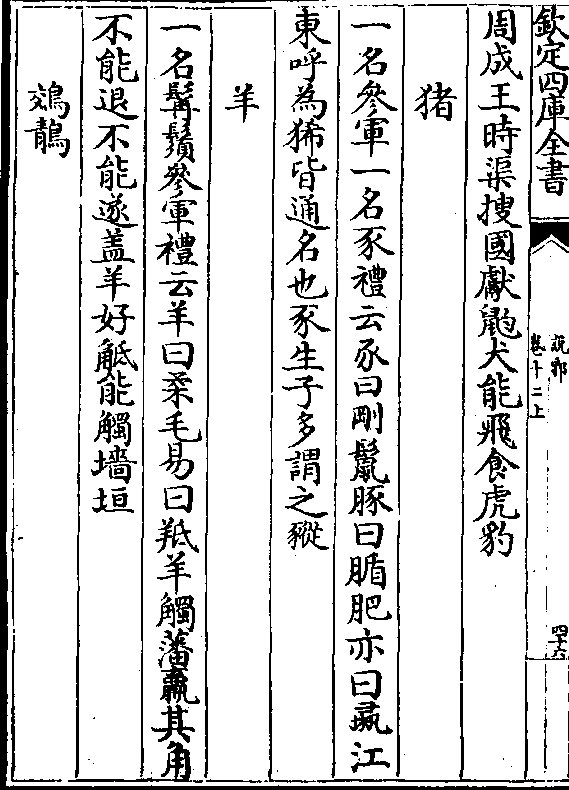 欽定四庫全書
說郛
卷十二上
四十六
周成王時渠搜國獻鼩犬能飛食虎豹
猪
一名參軍一名豕禮云豕曰剛鬛豚曰腯肥亦曰彘江
東呼為豨皆通名也豕生子多謂之豵
羊
一名髯鬚參軍禮云羊曰柔毛易曰羝羊觸藩羸其角
不能退不能遂盖羊好觝能觸墻垣
鵁鶄